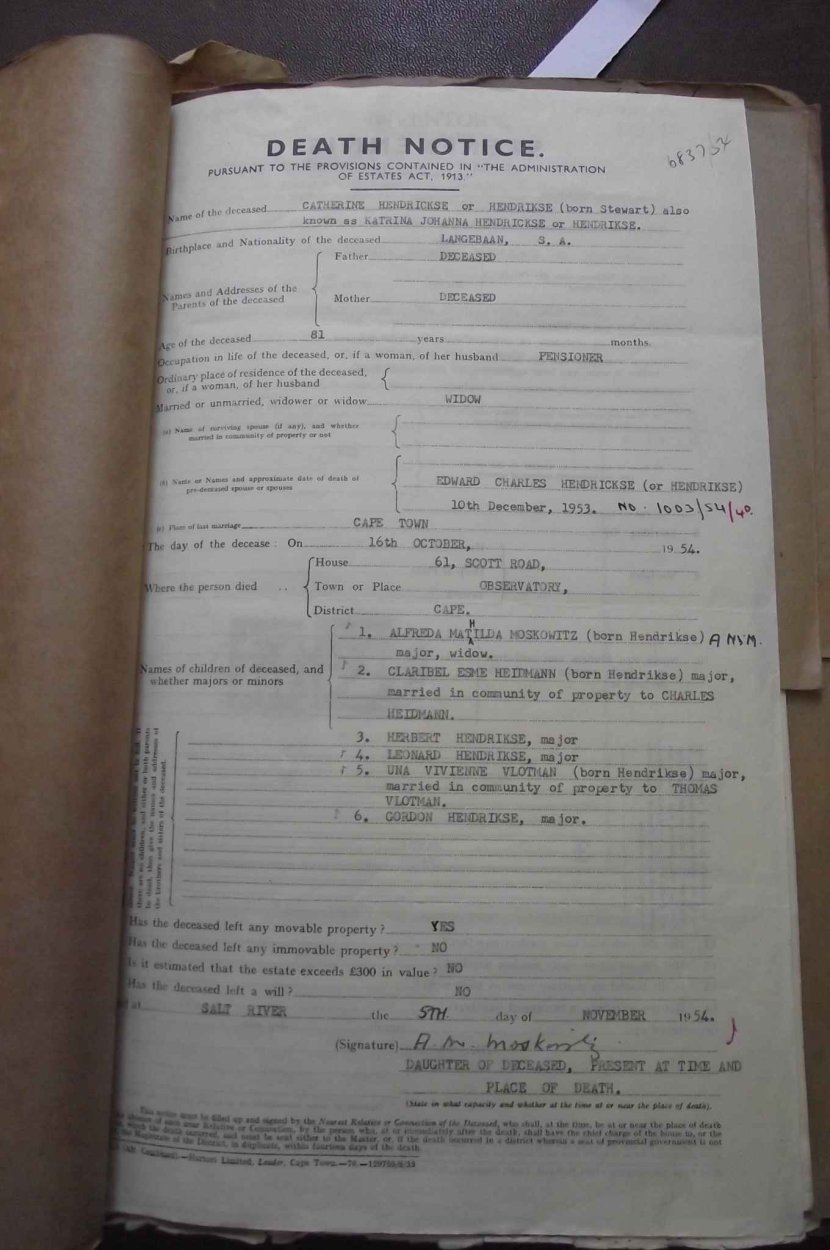 DEATH NOTICE.
6837/54
PURSUANT TO THE PROVISIONS CONTAINED IN "THE ADMINISTRATION
OF ESTATES ACT, 1913."
Name of the deceased CATHERINE HENDRICKSE or HENDRIKSE (born Stewart) also
known as KATRINA JOHANNA HENDRICKSE or HENDRIKSE.
Birthplace and Nationality of the deceased LANGEBAAN, S. A.
Names and Addresses of the
Parents of the deceased
Father DECEASED
Mother DECEASED
Age of the deceased 81 years months.
Occupation in life of the deceased, or, if a woman, of her husband PENSIONER
Ordinary place of residence of the deceased,
or, if a woman, of her husband
Married or unmarried, widower or widow WIDOW
(a) Name of surviving spouse (if any), and whether
married in community of property or not
(b) Name or Names and approximate date of death of
pre-deceased spouse or spouses
EDWARD CHARLES HENDRICKSE (or HENDRIKSE)
10th December, 1953. NO. 1003/54/40.
(c) Place of last marriage CAPE TOWN
The day of the decease: On 16th OCTOBER, 1954.
Where the person died ..
House 61, SCOTT ROAD,
Town or Place OBSERVATORY,
District CAPE.
Names of children of deceased, and
whether majors or minors
1. ALFREDA MATHILDA MOSKOWITZ (born Hendrikse) A.M.M.
major, widow.
2. CLARIBEL ESME HEIDMANN (born Hendrikse) major,
married in community of property to CHARLES
HEIDMANN.
3. HERBERT HENDRIKSE, major
4. LEONARD HENDRIKSE, major
5. UNA VIVIENNE VLOTMAN (born Hendrikse) major,
married in community of property to THOMAS
VLOTMAN.
6. GORDON HENDRIKSE, major.
there are no children, and either or both parents
be dead, then give the names and addresses of
the brothers and sisters of the deceased.
Has the deceased left any movable property? YES
Has the deceased left any immovable property? NO
Is it estimated that the estate exceeds £300 in value? NO
Has the deceased left a will? NO
at SALT RIVER the 5TH day of NOVEMBER 1954.
(Signature) A. M. Moskowitz
DAUGHTER OF DECEASED, PRESENT AT TIME AND
PLACE OF DEATH.
(State in what capacity and whether at the time at or near the place of death).
This notice must be filled up and signed by the Nearest Relative or Connection of the Deceased, who shall, at the time, be at or near the place of death
absence of such near Relative or Connection, by the person who, at or immediately after the death, shall have the chief charge of the house in, or the
which the death occurred, and must be sent either to the Master, or, if the death occurred in a district wherein a seat of provincial government is not
the Magistrate of the District, in duplicate, within fourteen days of the death.
Hortors Limited, Leader, Cape Town.